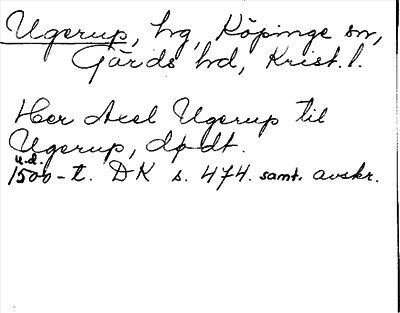 Ugerup, hg, Köpinge sn,
Gärds hd, Krist. l.
Herr Axel Ugerup til
Ugerup, dp dt.
u.d.
1500-t. DK s. 474. samt. avskr.